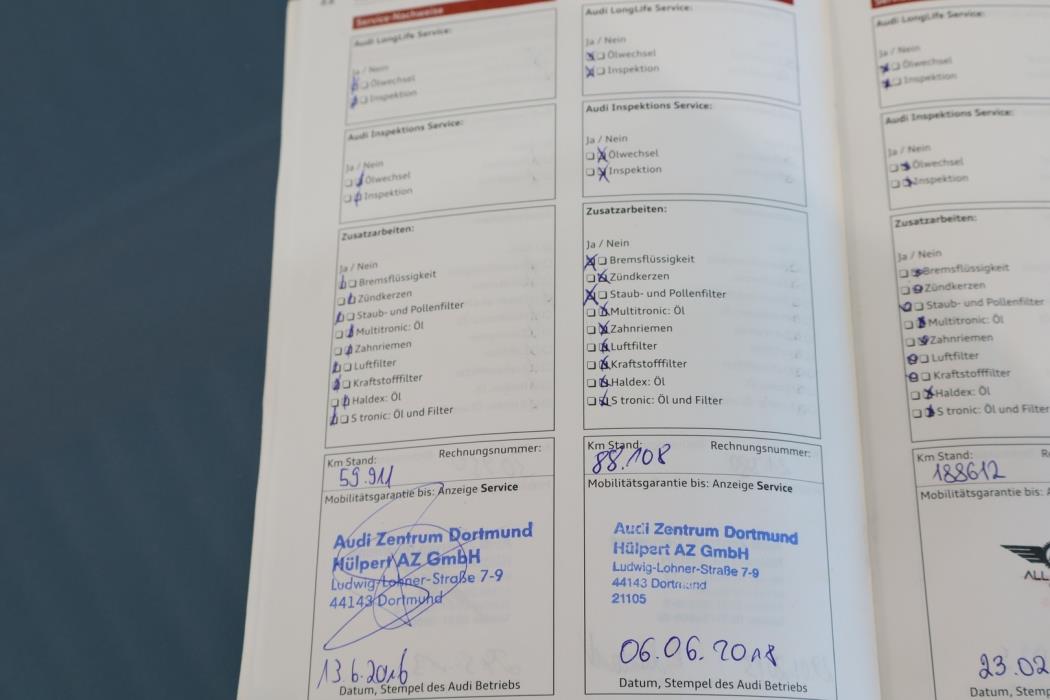 Service-Nachweise
Audi LongLife Service:
Ja / Nein
Ölwechsel
Inspektion
Audi Inspektions Service:
Ja / Nein
Ölwechsel
Inspektion
Zusatzarbeiten:
Ja / Nein
Bremsflüssigkeit
Zündkerzen
Staub- und Pollenfilter
Multitronic: Öl
Zahnriemen
Luftfilter
Kraftstofffilter
Haldex: Öl
S tronic: Öl und Filter
Km Stand:
Rechnungsnummer:
59.911
Mobilitätsgarantie bis: Anzeige Service
Audi Zentrum Dortmund
Hülpert AZ GmbH
Ludwig-Lohner-Straße 7-9
44143 Dortmund
13.6.2016
Datum, Stempel des Audi Betriebs
Audi LongLife Service:
Ja / Nein
Ölwechsel
Inspektion
Audi Inspektions Service:
Ja / Nein
Ölwechsel
Inspektion
Zusatzarbeiten:
Ja / Nein
Bremsflüssigkeit
Zündkerzen
Staub- und Pollenfilter
Multitronic: Öl
Zahnriemen
Luftfilter
Kraftstofffilter
Haldex: Öl
S tronic: Öl und Filter
Km Stand:
Rechnungsnummer:
88.108
Mobilitätsgarantie bis: Anzeige Service
Audi Zentrum Dortmund
Hülpert AZ GmbH
Ludwig-Lohner-Straße 7-9
44143 Dortmund
21105
06.06.2018
Datum, Stempel des Audi Betriebs
Audi LongLife Service:
Ja / Nein
Ölwechsel
Inspektion
Audi Inspektions Service:
Ja / Nein
Ölwechsel
Inspektion
Zusatzarbeiten:
Ja / Nein
Bremsflüssigkeit
Zündkerzen
Staub- und Pollenfilter
Multitronic: Öl
Zahnriemen
Luftfilter
Kraftstofffilter
Haldex: Öl
S tronic: Öl und Filter
Km Stand:
188612
Mobilitätsgarantie bis:
ALL
23.02
Datum, Stem